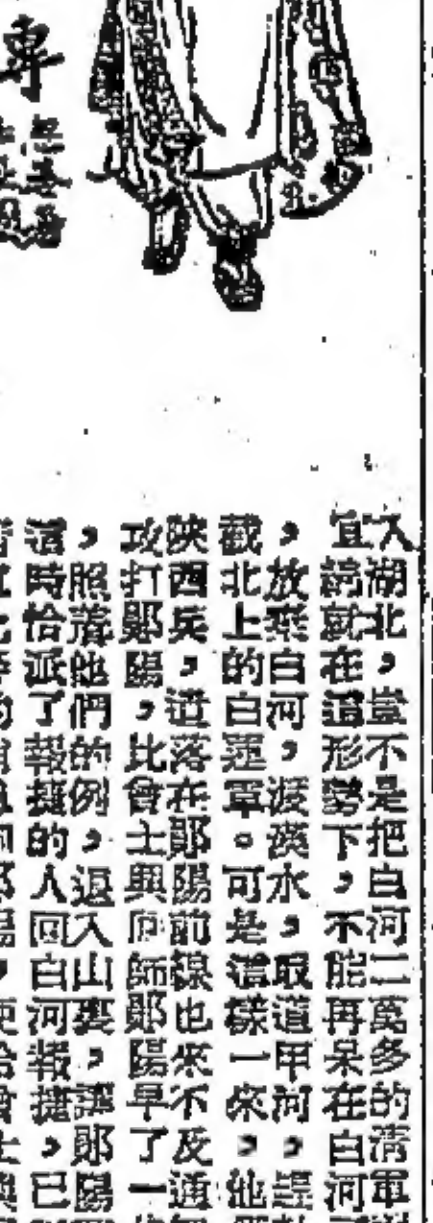 入湖北，豈不是把白河二萬多的清軍
宜綿就在這形勢下，不能再呆在白河
，放棄白河，渡漢水，取道甲河，趕
截北上的白蓮軍。可是這樣一來，他
陝西兵，遺落在鄖陽前線也來不及通
攻打鄖陽，比曾士興回師鄖陽早了一
，照着他們的例，退入山裏，讓鄖陽
這時恰派了報捷的人回白河報捷，已
專